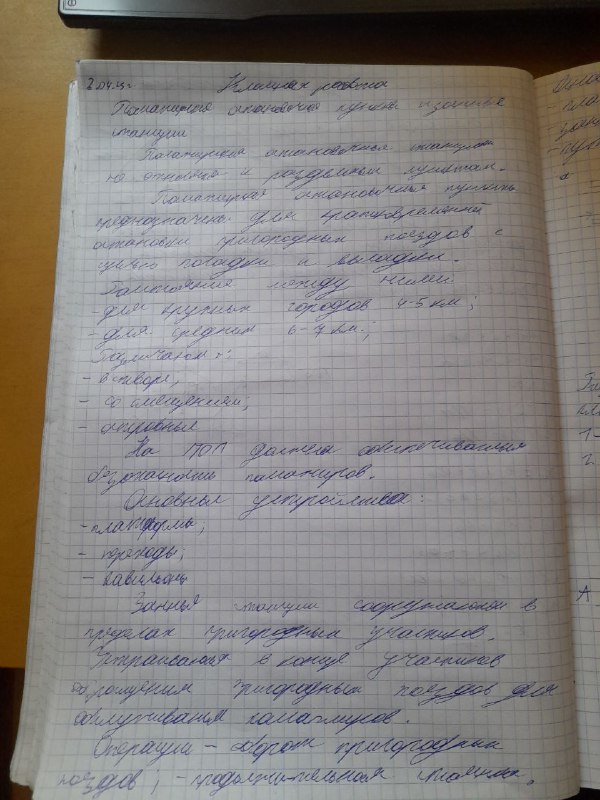 Классная работа
Пассажирские остановочные пункты и зонные
станции
Пассажирские остановочные
относятся к раздельным пунктам.
Пассажирские остановочные пункты
предназначены для кратковременной
остановки пригородных поездов с
целью посадки и высадки.
Расстояние между ними
- для крупных городов 4-5 км;
- для средних 6-7 км.;
Различают:
- в створе;
- со смещением;
- островные
На ПОП должна обеспечиваться
безопасность пассажиров.
Основные устройства:
- платформы;
- переходы;
- павильоны
Зонные станции сооружаются в
пределах пригородных участков.
Устраиваются в конце участков
обращения пригородных поездов для
обслуживания пассажиров.
Операции - оборот пригородных
поездов; - продолжительная стоянка.
1-
2.
А